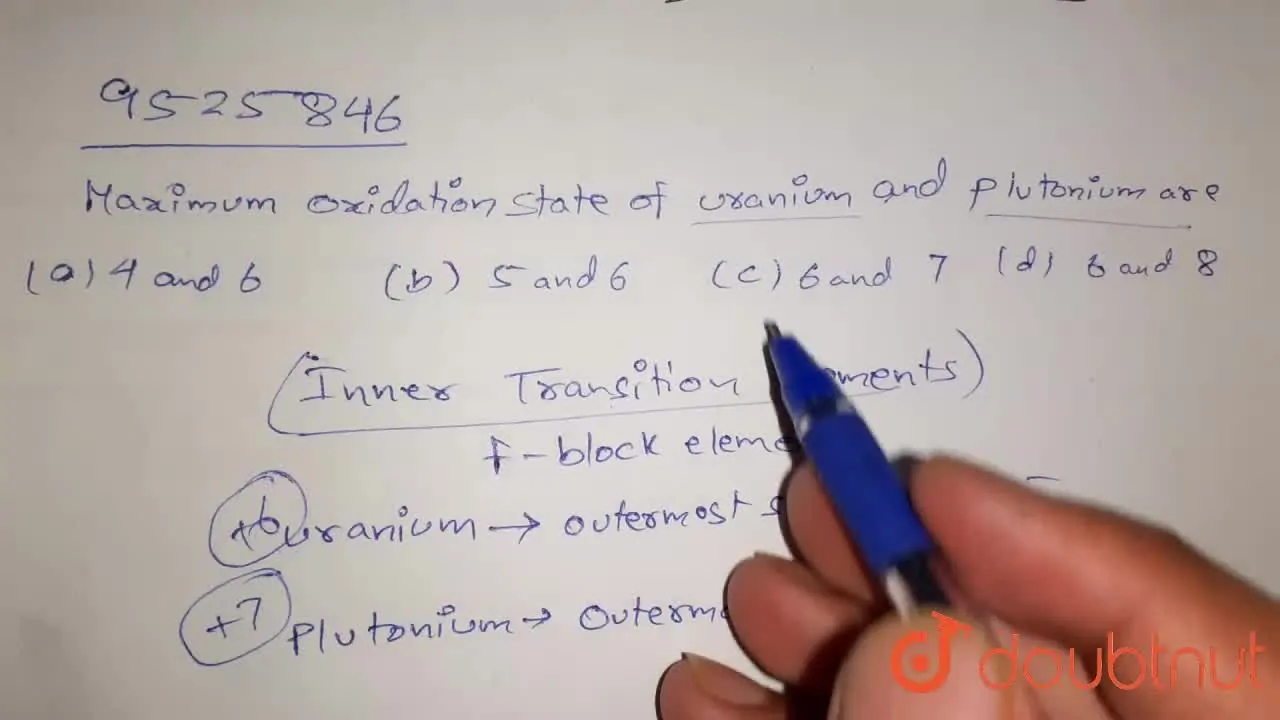 9525846
Maximum oxidation state of uranium and plutonium are
(a) 4 and 6 (b) 5 and 6 (c) 6 and 7 (d) 6 and 8
(Inner Transition ements)
f-block eleme
+6 uranium → outermost s
+7 plutonium → Outerm
doubtnut